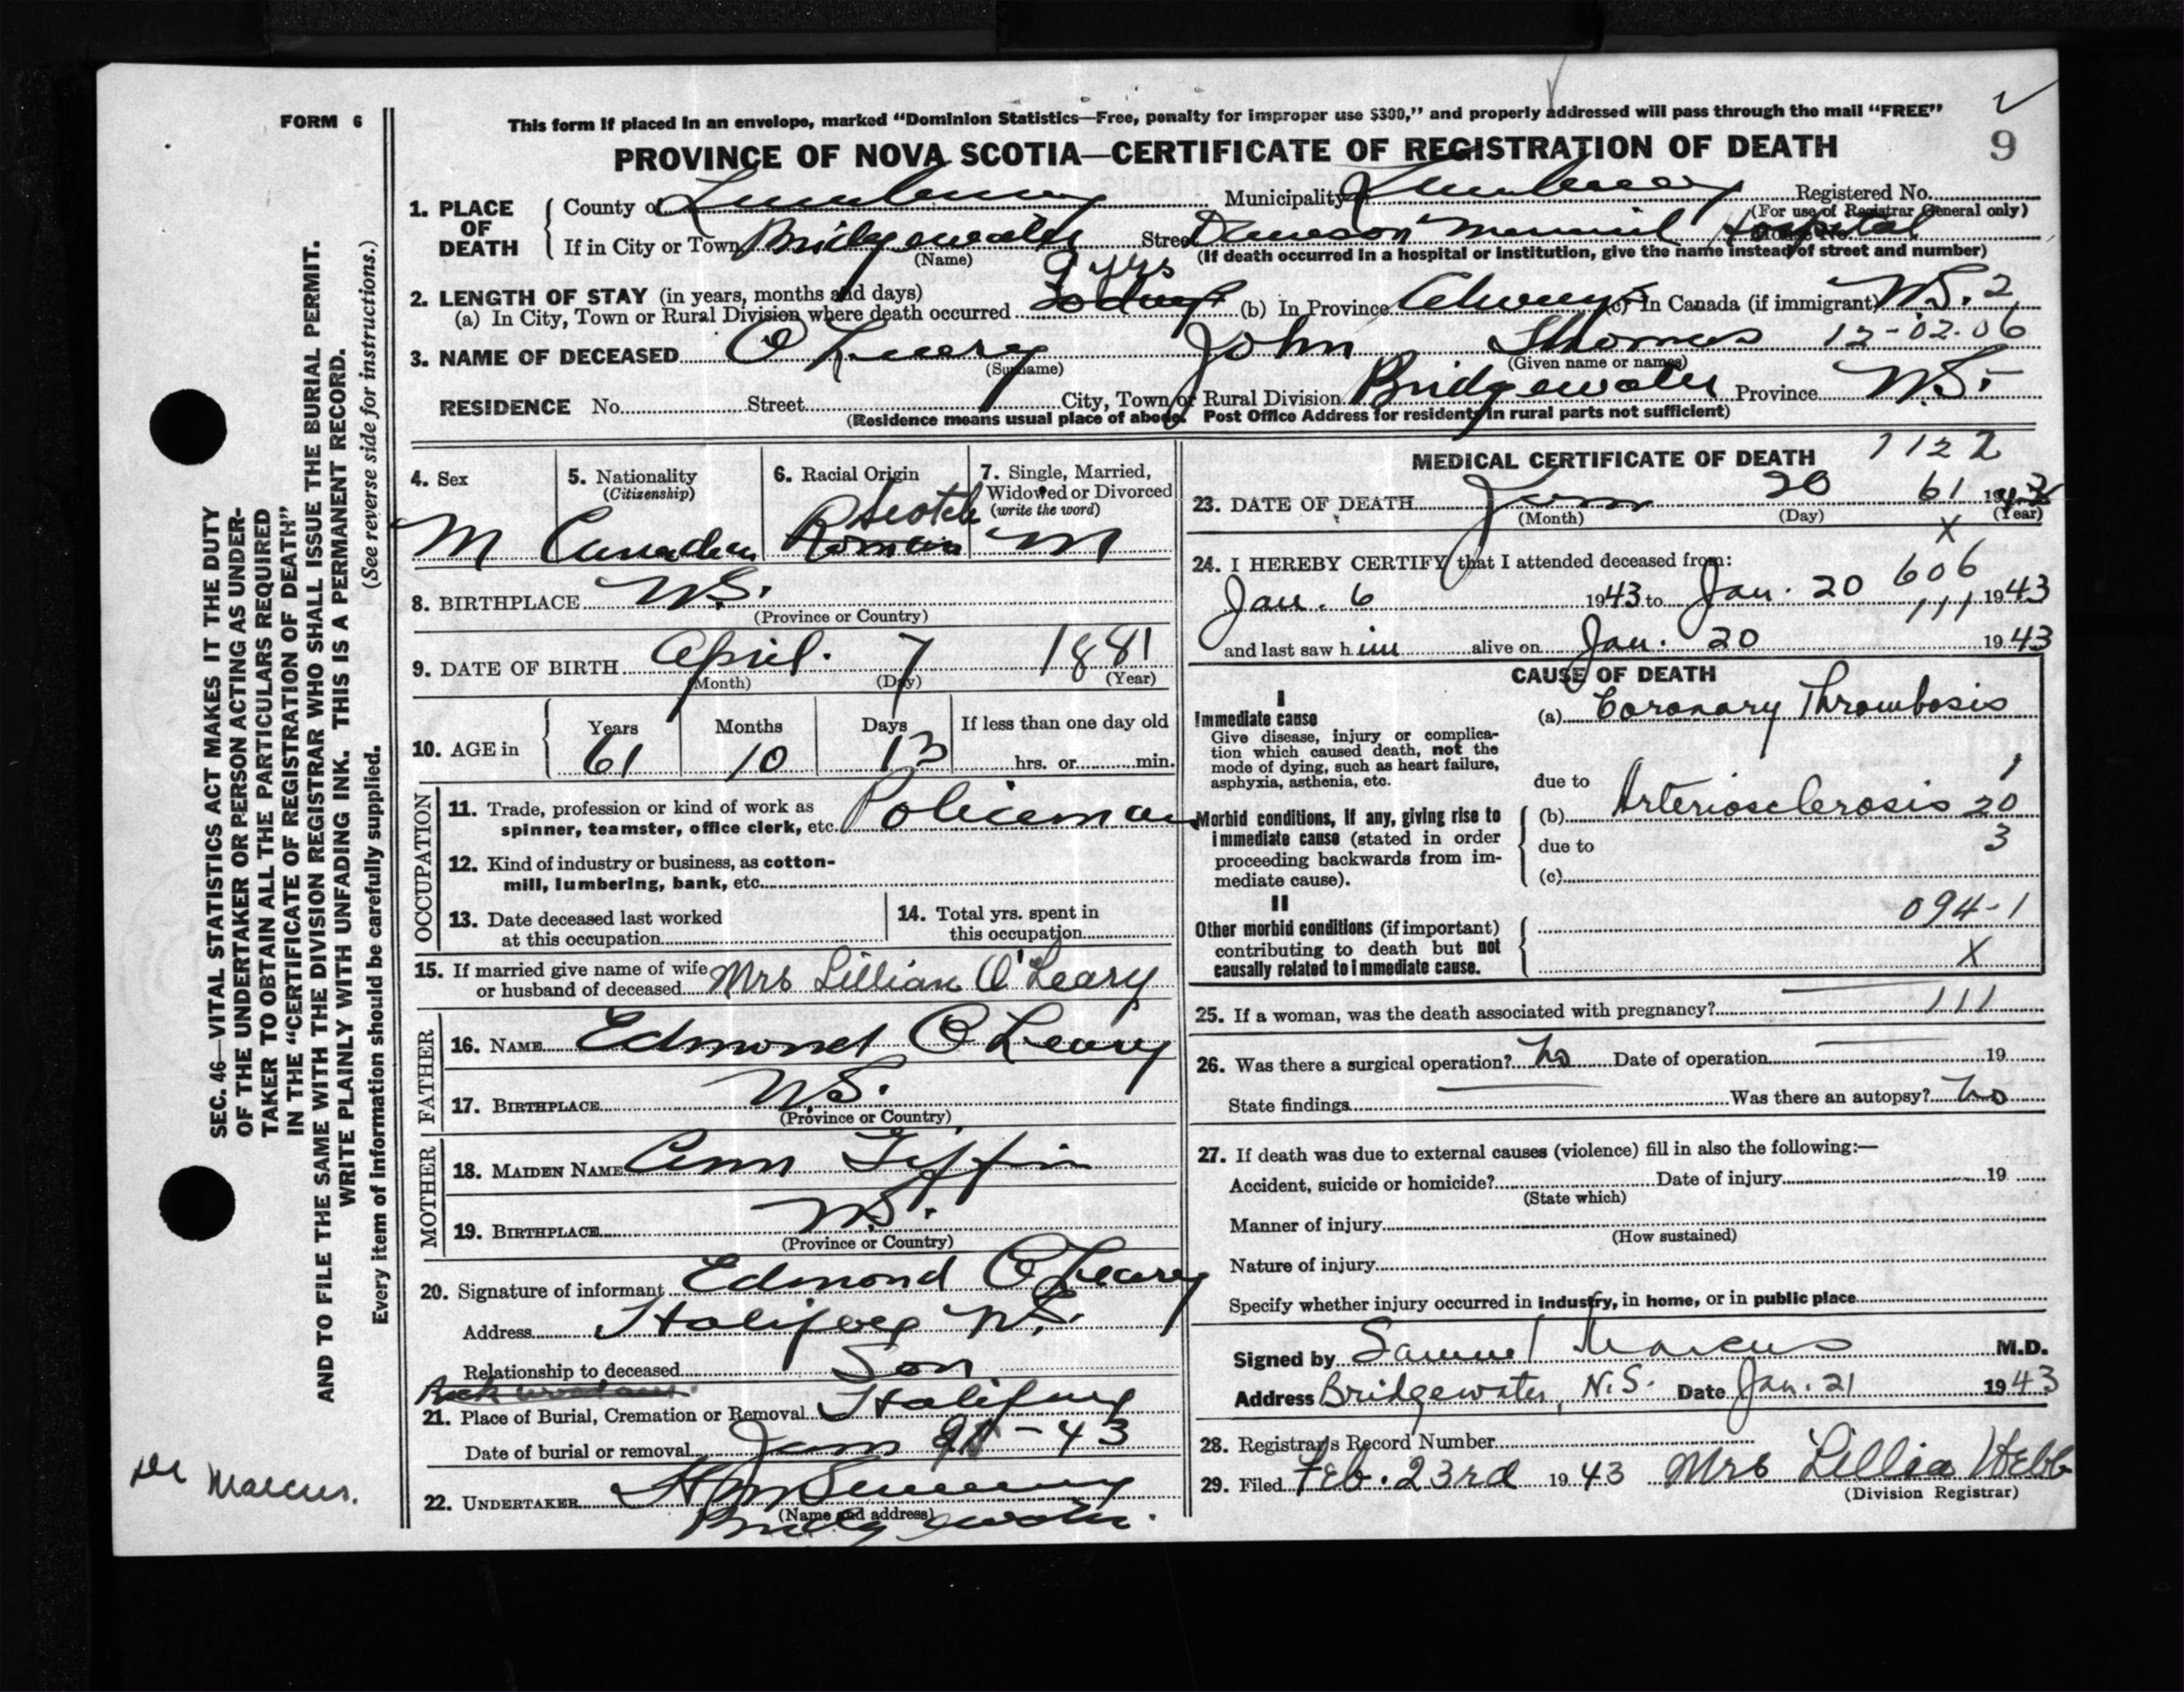 FORM 6
This form if placed in an envelope, marked “Dominion Statistics—Free, penalty for improper use $300,” and properly addressed will pass through the mail “FREE”
9
PROVINCE OF NOVA SCOTIA—CERTIFICATE OF REGISTRATION OF DEATH
1. PLACE OF DEATH
County of Lunenburg Municipality Lunenburg Registered No.
(For use of Registrar General only)
If in City or Town Bridgewater Street Dawson Memorial Hospital
(Name) (If death occurred in a hospital or institution, give the name instead of street and number)
2. LENGTH OF STAY (in years, months and days)
9 yrs
(a) In City, Town or Rural Division where death occurred (b) In Province Always (c) In Canada (if immigrant) N.S. 2
3. NAME OF DECEASED O Leary John Thomas 12-02-06
(Surname) (Given name or names)
RESIDENCE No. Street City, Town or Rural Division Bridgewater Province N.S.
(Residence means usual place of abode. Post Office Address for residents in rural parts not sufficient)
4. Sex M
5. Nationality (Citizenship) Canadian
6. Racial Origin Scotch Roman
7. Single, Married, Widowed or Divorced (write the word) M
8. BIRTHPLACE N.S.
(Province or Country)
9. DATE OF BIRTH April 7 1881
(Month) (Day) (Year)
10. AGE in Years 61 Months 10 Days 13 If less than one day old hrs. or min.
OCCUPATION
11. Trade, profession or kind of work as spinner, teamster, office clerk, etc. Policeman
12. Kind of industry or business, as cotton-mill, lumbering, bank, etc.
13. Date deceased last worked at this occupation
14. Total yrs. spent in this occupation
15. If married give name of wife or husband of deceased Mrs Lillian O'Leary
FATHER
16. NAME Edmond O Leary
17. BIRTHPLACE N.S.
(Province or Country)
MOTHER
18. MAIDEN NAME Ann Giffin
19. BIRTHPLACE N.S.
(Province or Country)
20. Signature of informant Edmond O Leary
Address Halifax N.S.
Relationship to deceased Son
21. Place of Burial, Cremation or Removal Halifax
Date of burial or removal Jan -43
22. UNDERTAKER
(Name and address)
Bridgewater.
MEDICAL CERTIFICATE OF DEATH 1122
23. DATE OF DEATH Jan 20 61 1943
(Month) (Day) (Year)
X
24. I HEREBY CERTIFY that I attended deceased from:
606
Jan. 6 1943 to Jan. 20 1943
111
and last saw him alive on Jan. 20 1943
CAUSE OF DEATH
I
Immediate cause
Give disease, injury or complication which caused death, not the mode of dying, such as heart failure, asphyxia, asthenia, etc.
(a) Coronary Thrombosis
due to 1
Morbid conditions, if any, giving rise to immediate cause (stated in order proceeding backwards from immediate cause).
(b) Arteriosclerosis 20
due to 3
(c)
II
094-1
Other morbid conditions (if important) contributing to death but not causally related to immediate cause.
X
25. If a woman, was the death associated with pregnancy? 111
26. Was there a surgical operation? No Date of operation 19
State findings Was there an autopsy? No
27. If death was due to external causes (violence) fill in also the following:—
Accident, suicide or homicide? Date of injury 19
(State which)
Manner of injury
(How sustained)
Nature of injury
Specify whether injury occurred in industry, in home, or in public place
Signed by Samuel Marcus M.D.
Address Bridgewater, N.S. Date Jan. 21 1943
28. Registrar's Record Number
29. Filed Feb. 23rd 1943 Mrs Lillia Webb
(Division Registrar)
SEC. 46—VITAL STATISTICS ACT MAKES IT THE DUTY
OF THE UNDERTAKER OR PERSON ACTING AS UNDER-
TAKER TO OBTAIN ALL THE PARTICULARS REQUIRED
IN THE “CERTIFICATE OF REGISTRATION OF DEATH”
AND TO FILE THE SAME WITH THE DIVISION REGISTRAR WHO SHALL ISSUE THE BURIAL PERMIT.
WRITE PLAINLY WITH UNFADING INK. THIS IS A PERMANENT RECORD.
Every item of information should be carefully supplied. (See reverse side for instructions.)
Dr Marcus.